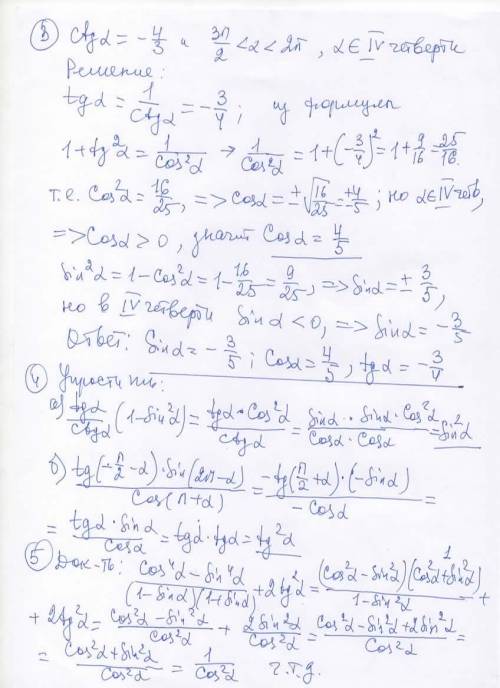 ③ Ctgα = -4/3 и 3π/2 < α < 2π , α ∈ IV четверти
Решение:
tgα = 1/Ctgα = -3/4 ; из формулы
1+tg²α = 1/Cos²α → 1/Cos²α = 1+(-3/4)² = 1+9/16 = 25/16.
т.е. Cos²α = 16/25, => Cosα = ±√16/25 = ±4/5 ; но α ∈ IV четв,
=> Cosα > 0 , значит Cosα = 4/5
Sin²α = 1-Cos²α = 1-16/25 = 9/25, => Sinα = ± 3/5,
но в IV четверти Sinα < 0, => Sinα = -3/5
Ответ: Sinα = -3/5 ; Cosα = 4/5 , tgα = -3/4
④ Упростить:
а) tgα/Ctgα (1-Sin²α) = tgα·Cos²α/Ctgα = Sinα · Sinα · Cos²α/Cosα · Cosα = Sin²α
б) tg(-π/2 -α)·Sin(2π-α)/Cos(π+α) = -tg(π/2+α)·(-Sinα)/-Cosα =
= tgα·Sinα/Cosα = tgα·tgα = tg²α
⑤ Док-ть: Cos⁴α-Sin⁴α/(1-Sinα)(1+Sinα) +2tg²α = (Cos²α-Sin²α)(Cos²α+Sin²α) 1/1-Sin²α +
+ 2tg²α = Cos²α-Sin²α/Cos²α + 2Sin²α/Cos²α = Cos²α-Sin²α+2Sin²α/Cos²α =
= Cos²α+Sin²α/Cos²α = 1/Cos²α ч.т.д.